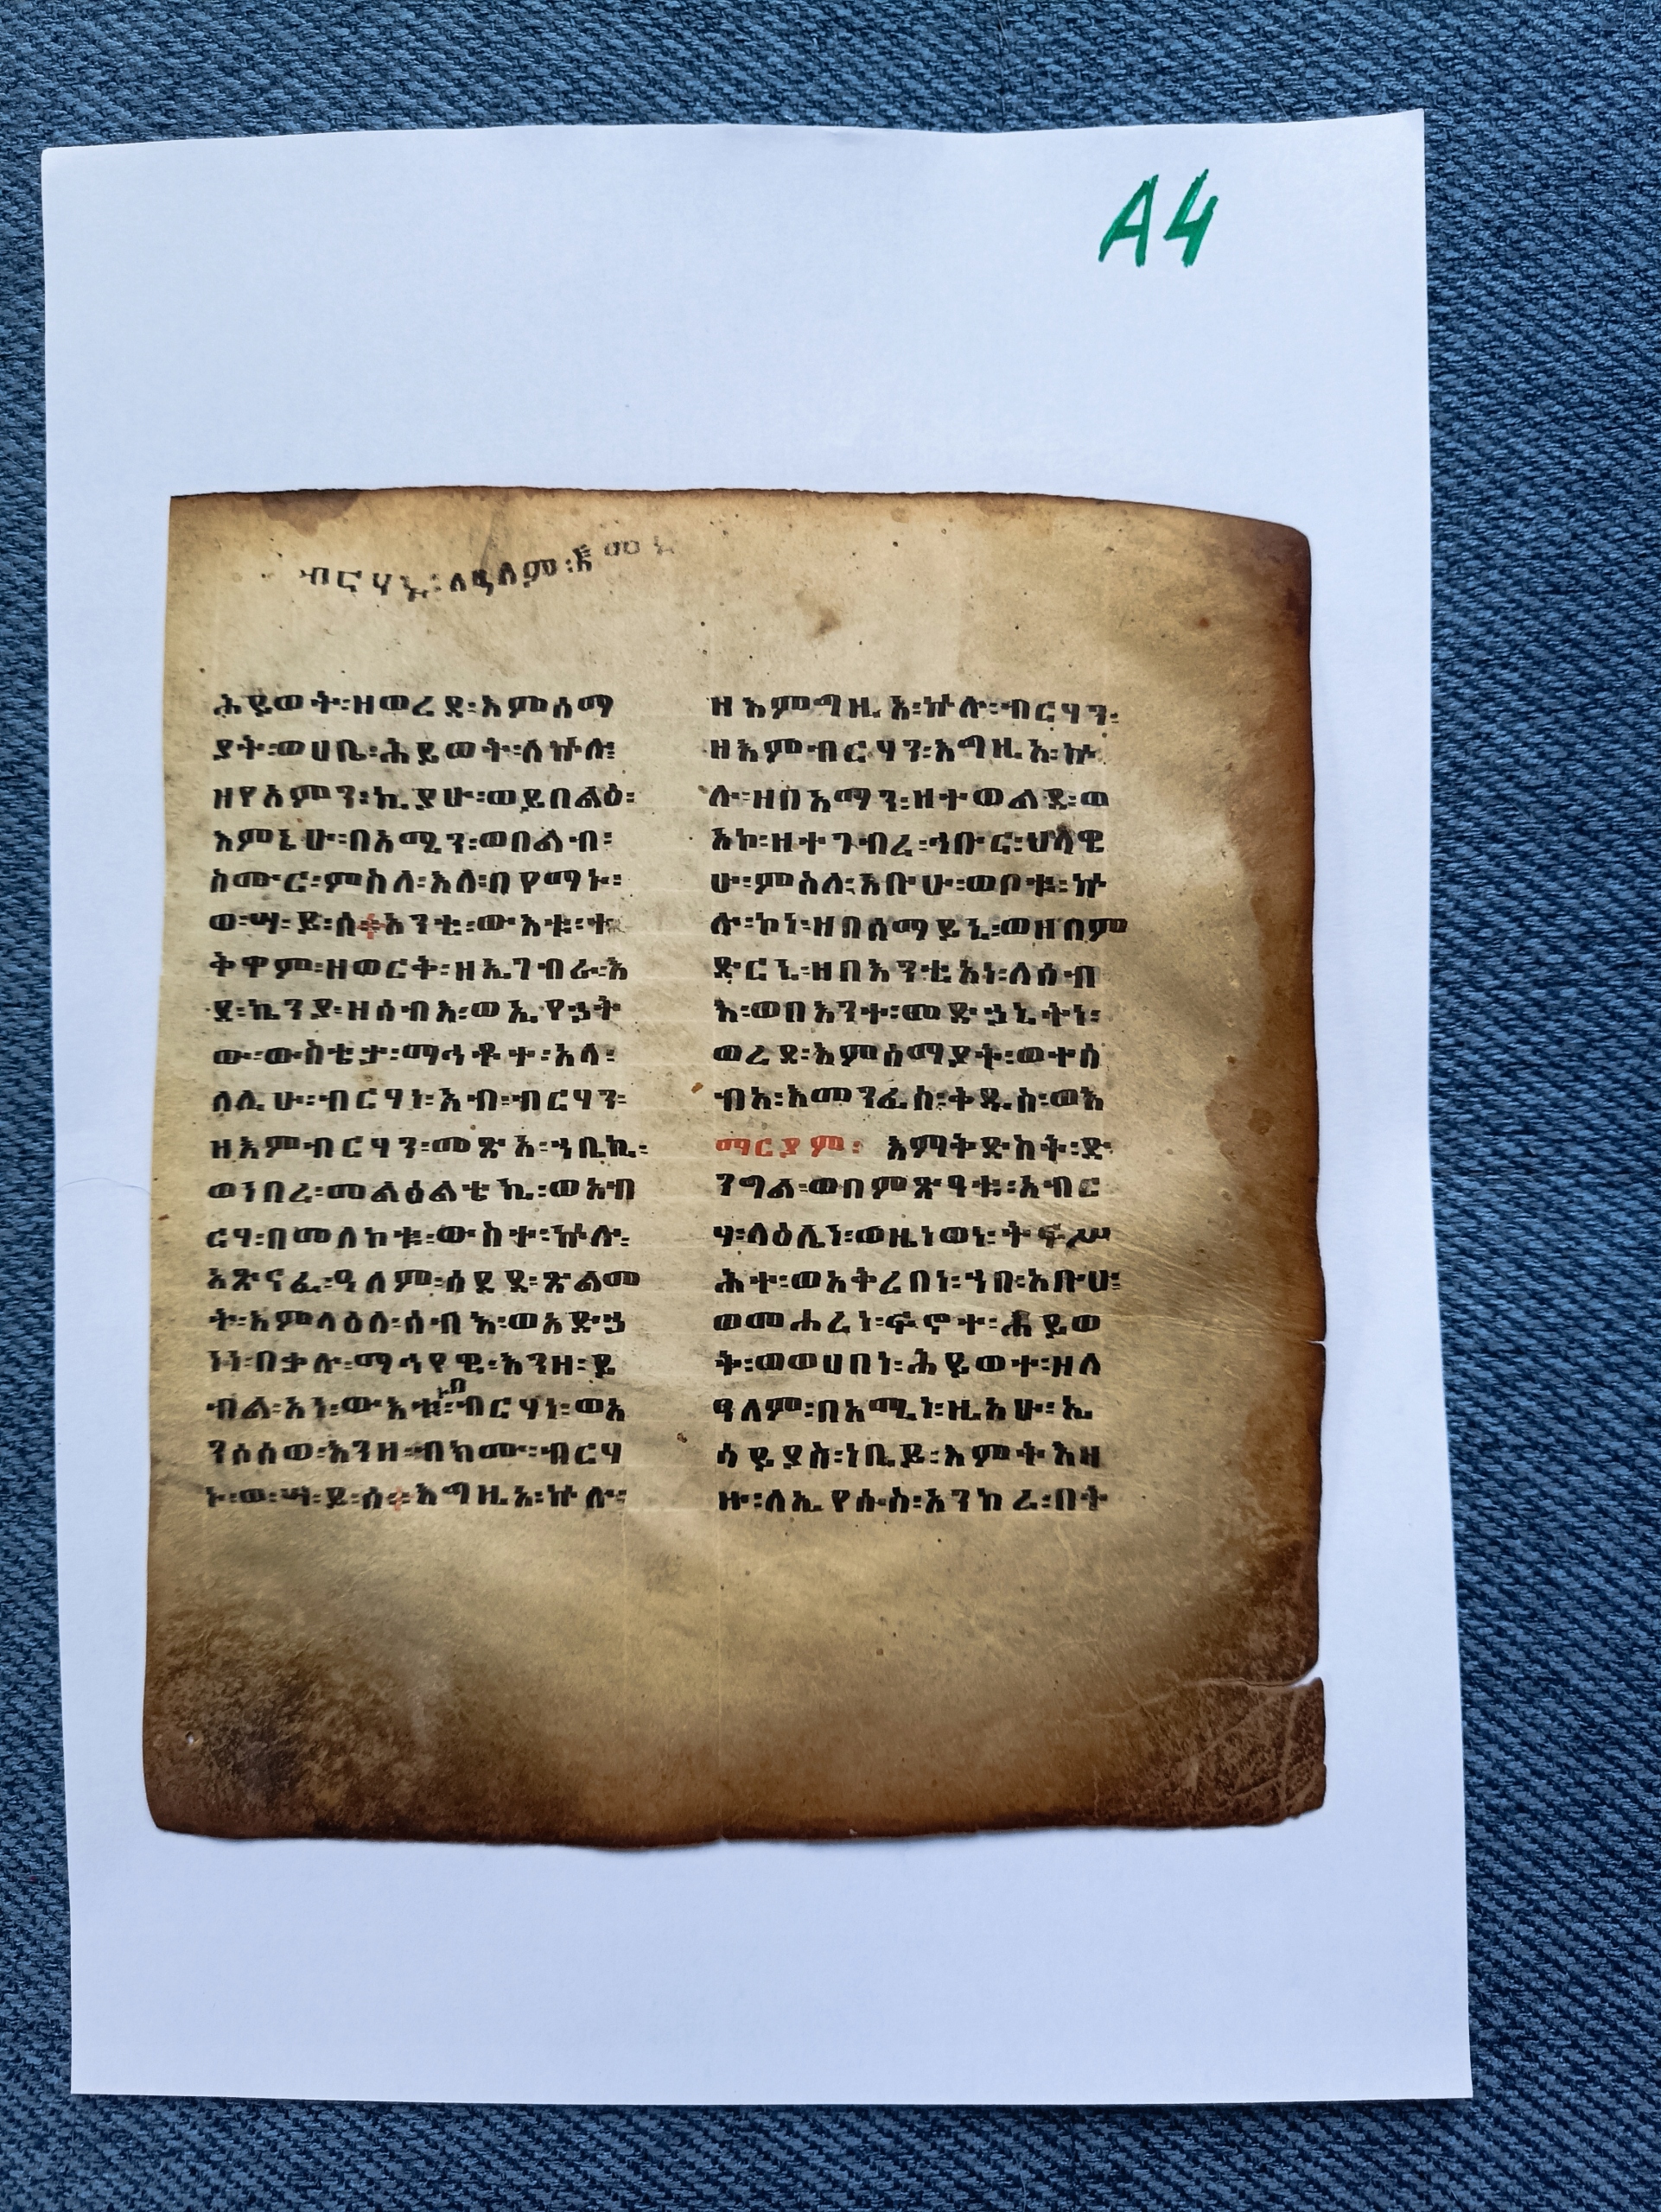 A4
ብርሃኑ፡ለዓለም፡
ሕይወት፡ዘወረደ፡እምሰማ
ያት፡ወሀቤ፡ሕይወት፡ለኵሉ፡
ዘየአምን፡ኪያሁ፡ወይበልዕ፡
እምኔሁ፡በአሚን፡ወበልብ፡
ስሙር፡ምስለ፡እለ፡በየማኑ፡
ወ፡ሣ፡ይ፡ሰ፡አንቲ፡ውእቱ፡ተ
ቅዋም፡ዘወርቅ፡ዘኢገብራ፡እ
ደ፡ኪንያ፡ዘሰብእ፡ወኢየኃት
ው፡ውስቴታ፡ማኅቶተ፡አላ፡
ለሊሁ፡ብርሃነ፡አብ፡ብርሃን፡
ዘእምብርሃን፡መጽአ፡ኀቤኪ፡
ወነበረ፡መልዕልቴኪ፡ወአብ
ርሃ፡በመለኮቱ፡ውስተ፡ኵሉ፡
አጽናፈ፡ዓለም፡ሰደደ፡ጽልመ
ት፡እምላዕለ፡ሰብእ፡ወአድኃ
ነነ፡በቃሉ፡ማኅየዊ፡እንዘ፡ይ
ብል፡አነ፡ውእቱ፡ብርሃነ፡ወአ
ንሶሰወ፡እንዘ፡ብክሙ፡ብርሃ
ኑ፡ወ፡ሣ፡ይ፡ሰ፡እግዚአ፡ኵሉ፡
ዘእምግዚአ፡ኵሉ፡ብርሃን፡
ዘእምብርሃን፡እግዚአ፡ኵ
ሉ፡ዘበአማን፡ዘተወልደ፡ወ
አኮ፡ዘተገብረ፡ኅቡር፡ህላዌ
ሁ፡ምስለ፡አቡሁ፡ወቦቱ፡ኵ
ሉ፡ኮነ፡ዘበሰማይኒ፡ወዘበም
ድርኒ፡ዘበእንቲአነ፡ለሰብ
እ፡ወበእንተ፡መድኃኒትነ፡
ወረደ፡እምሰማያት፡ወተሰ
ብአ፡እመንፈስ፡ቅዱስ፡ወእ
ማርያም፡ እማቅድስት፡ድ
ንግል፡ወበምጽዓቱ፡አብር
ሃ፡ላዕሌነ፡ወዜነወነ፡ትፍሥ
ሕተ፡ወአቅረበነ፡ኀበ፡አቡሀ፡
ወመሐረነ፡ፍኖተ፡ሕይወ
ት፡ወወሀበነ፡ሕይወተ፡ዘለ
ዓለም፡በአሚነ፡ዚአሁ፡ኢ
ሳይያስ፡ነቢይ፡እምትእዛ
ዙ፡ለኢየሱስ፡አንከረ፡በት